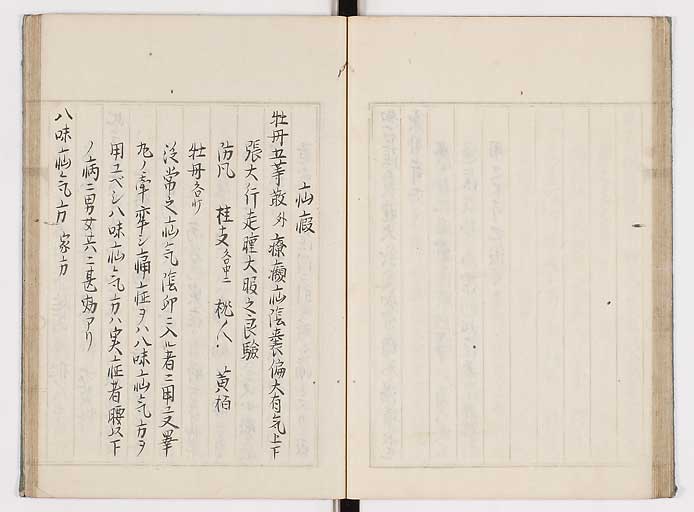 疝瘕
牡丹五等散 外 療癩疝陰嚢偏大有気上下
張大行走腫大服之良験
防風 桂支 各中 桃人 黄柏
牡丹 各
泛常之疝気陰卯ニ入ル者ニ用ユ又睾
丸ノ牽牽シ痛症ヲハ八味疝気方ヲ
用ユベシ八味疝気方ハ実症者腰以下
ノ病ニ男女共ニ甚効アリ
八味疝気方 家方